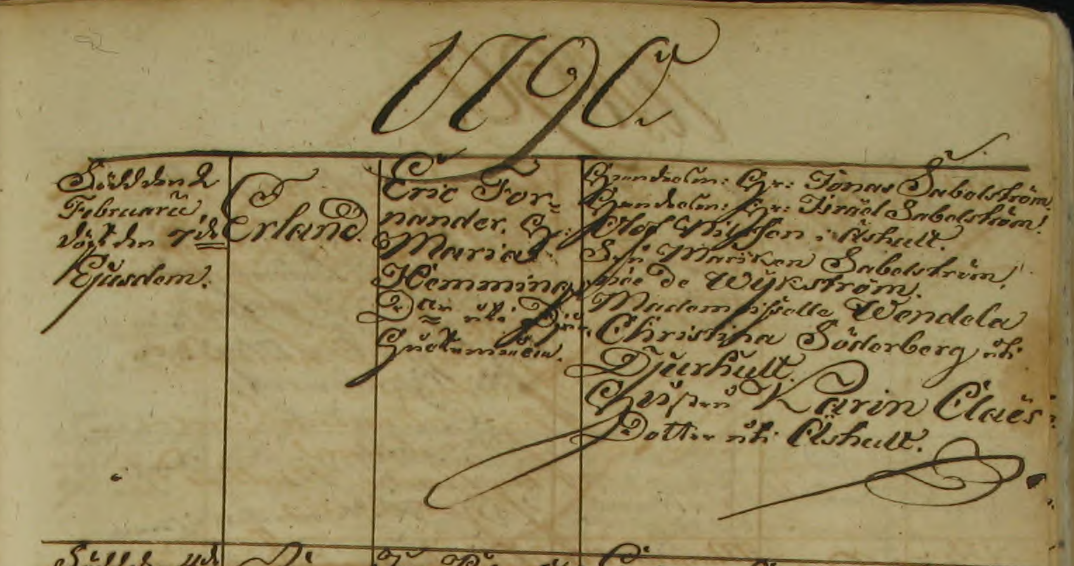 1790.
Född den 2
Februarii
döpt den 7de
Ejusdem.
Erland.
Eric For=
nander. H:
Maria
Hemmings
Dar uti
Handelsm: Hr: Jonas Sabelström.
Handelsm: Hr: Israël Sabelström.
Olof Nilsson i Åshult
Fru Mariken Sabelström
née de Wijkström.
Madem sselle Wendela
Christina Söderberg uti
Djurhult.
Hustru Karin Claës=
Dotter uti Åshult.